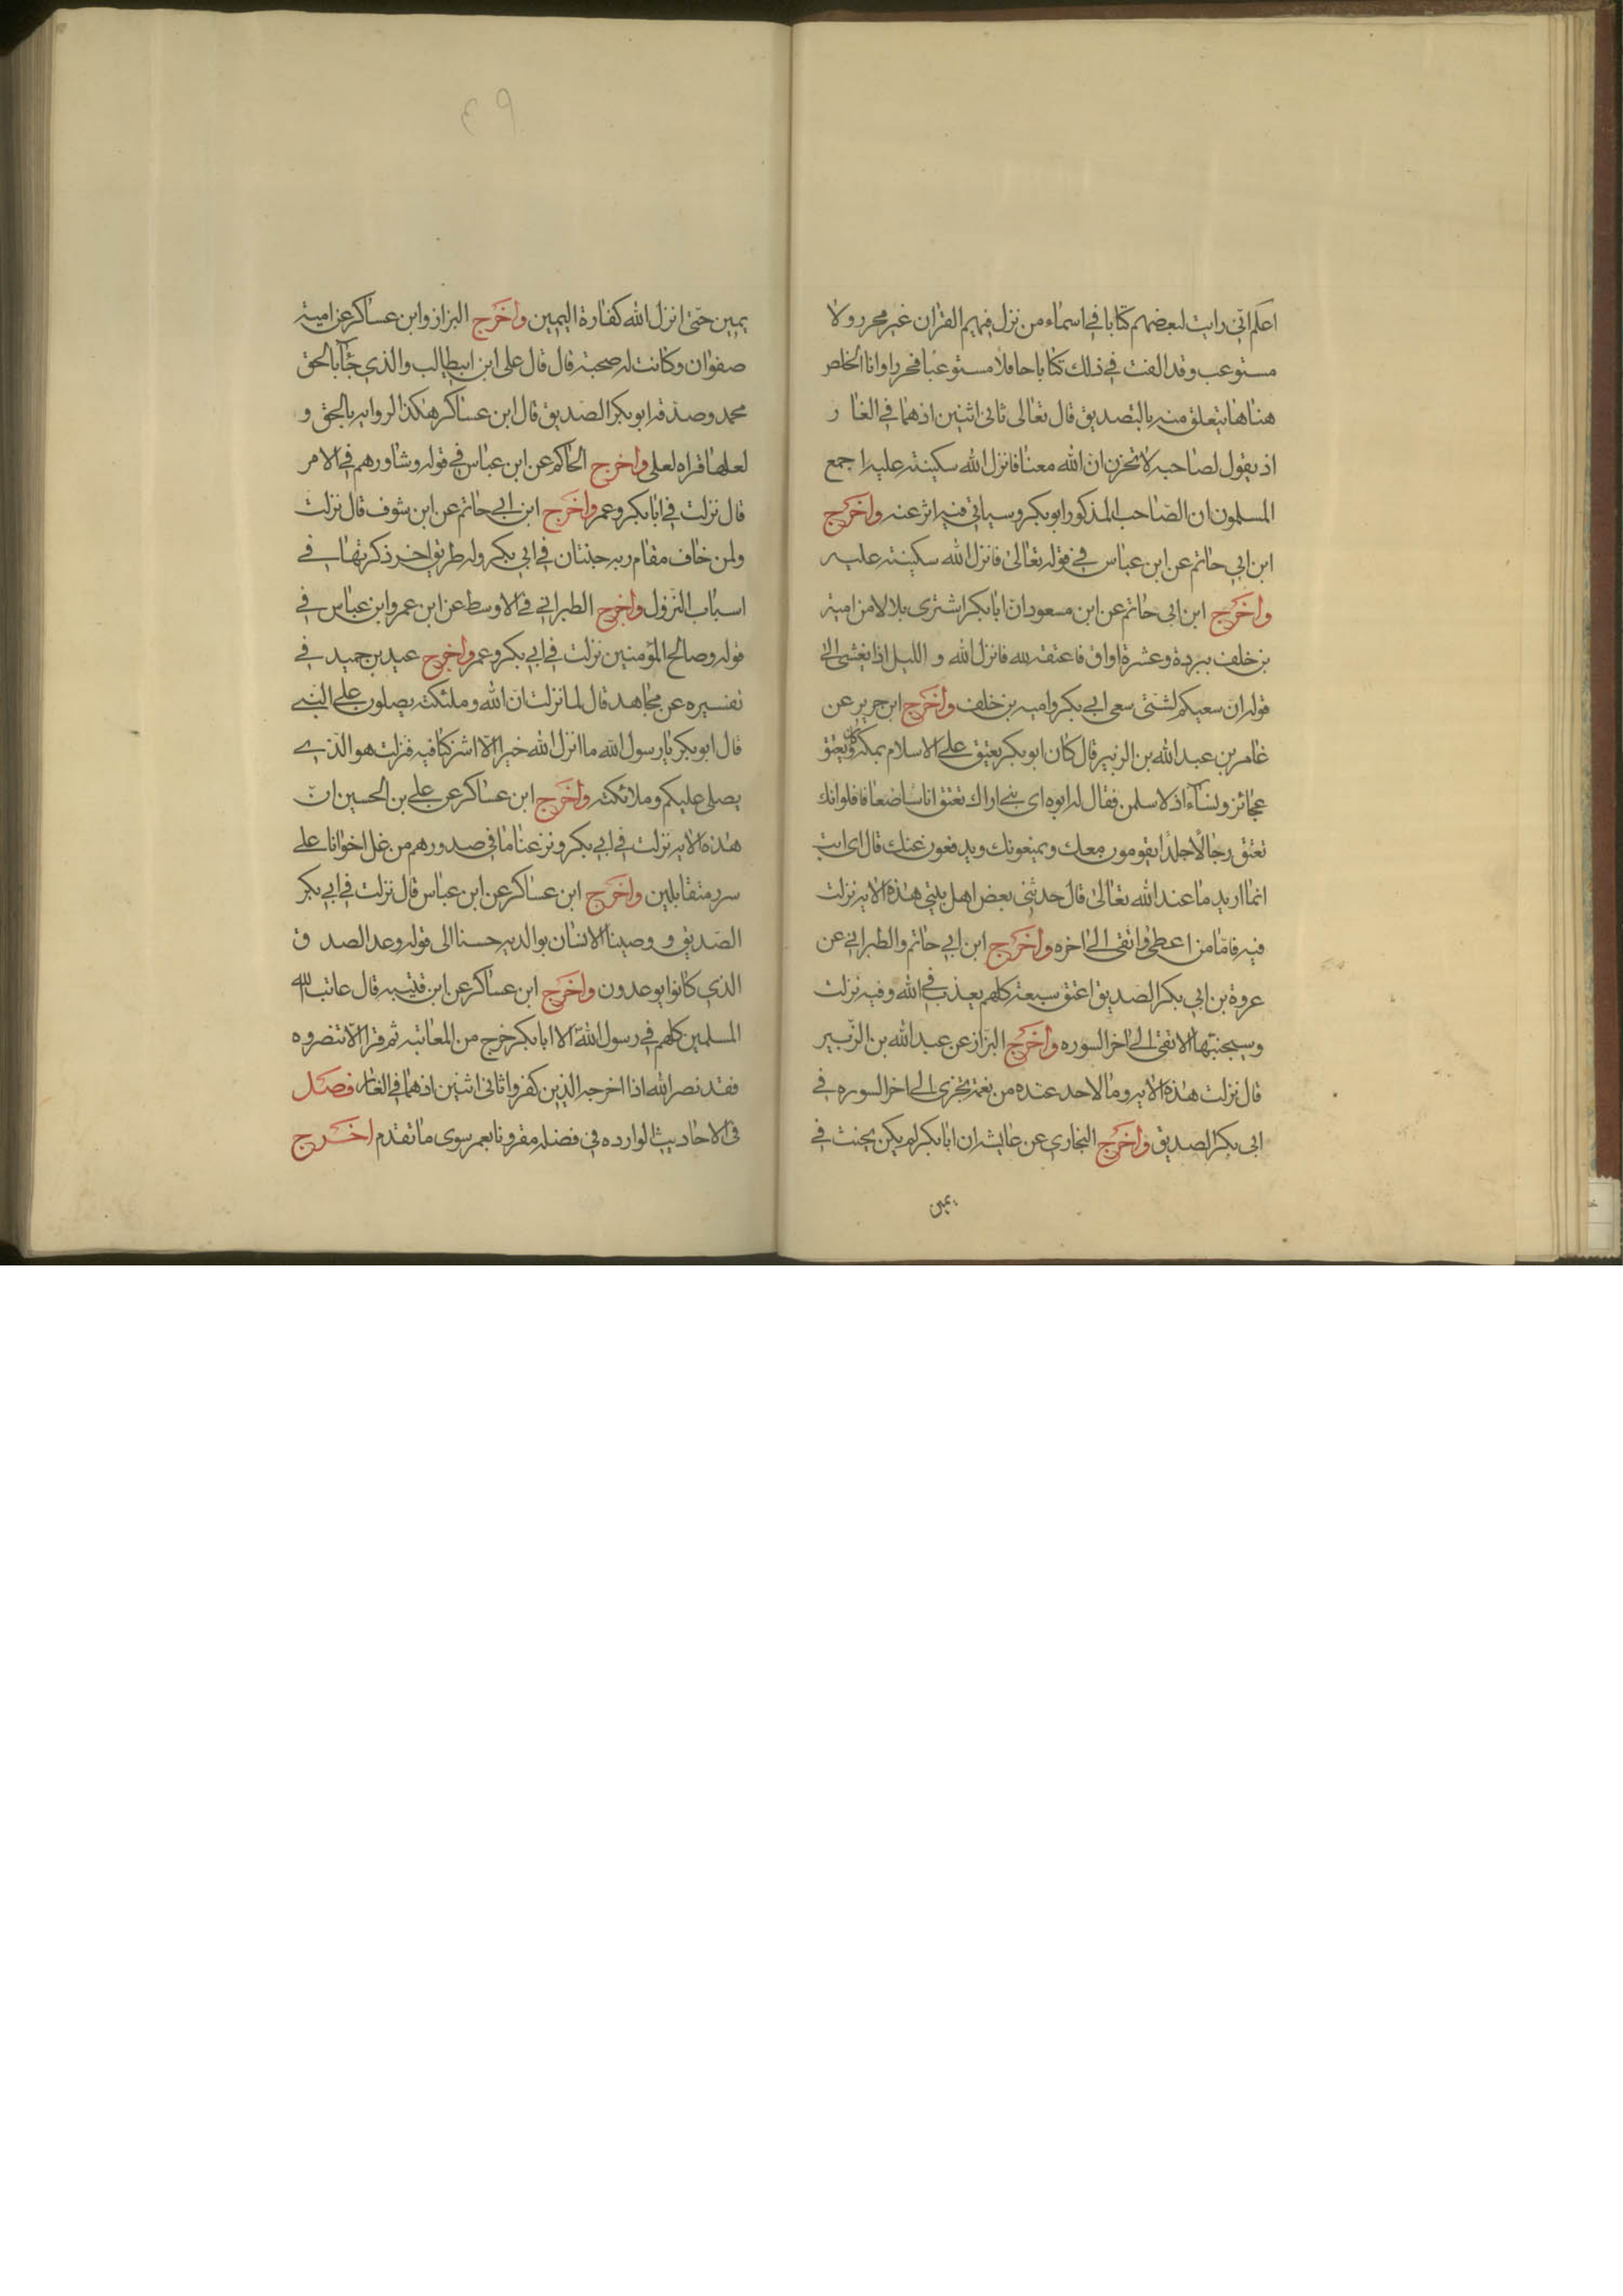 اعلم اني رايت لبعضهم كتابا في اسماء من نزل فيهم القران غير محرر ولا
مستوعب وقد الفت في ذلك كتابا حافلا مستوعبا محررا وانا الخاص
هنا هنا يتعلق منه بالتصديق قال تعالى ثاني اثنين اذهما في الغار
اذ يقول لصاحبه لا تحزن ان الله معنا فانزل الله سكينته عليه اجمع
المسلمون ان الصاحب المذكور ابو بكر وسياتي فيه اثر عنه واخرج
ابن ابي حاتم عن ابن عباس في قوله تعالى فانزل الله سكينته عليه
واخرج ابن ابي حاتم عن ابن مسعود ان ابا بكر اشترى بلالا من امية
بن خلف ببردة وعشرة اواق فاعتقه لله فانزل الله و الليل اذا يغشى الى
قوله ان سعيكم لشتى سعي ابي بكر واميه بن خلف واخرج ابن جرير عن
عامر بن عبد الله بن الزبير قال كان ابو بكر يعتق على الاسلام بمكة وكان يعتق
عجائز ونساء اذ لا سلمن فقال له ابوه اي بني اراك تعتق اناسا ضعافا فلو انك
تعتق رجالا جلدا يقومون معك ويمنعونك ويدفعون عنك قال اي ابت
انما اريد ما عند الله تعالى قال حدثني بعض اهل بيتي هذه الايه نزلت
فيه فاما من اعطى واتقى الى اخره واخرج ابن ابي حاتم والطبراني عن
عروة بن ابي بكر الصديق اعتق سبعة كلهم يعذب في الله وفيه نزلت
وسيجنبها الاتقى الى اخر السوره واخرج البزاز عن عبد الله بن الزبير
قال نزلت هذه الايه وما لاحد عنده من نعمة تجزى الى اخر السوره في
ابي بكر الصديق واخرج البخاري عن عايشه ان ابا بكر لم يكن يحنث في
يمين
٩٤
يمين حتى انزل الله كفارة اليمين واخرج البزاز وابن عساكر عن امية
صفوان وكانت له صحبة قال قال على ابن ابيطالب والذي جاء بالحق
محمد وصدقه ابو بكر الصديق قال ابن عساكر هكذا الروايه بالحق و
لعلها قراه لعلى واخرج الحاكم عن ابن عباس في قوله وشاورهم في الامر
قال نزلت في ابا بكر وعمر واخرج ابن ابي حاتم عن ابن شوف قال نزلت
ولمن خاف مقام ربه جنتان في ابي بكر وله طريق اخر ذكرتها في
اسباب النزول واخرج الطبراني في الاوسط عن ابن عمر وابن عباس في
قوله وصالح المؤمنين نزلت في ابي بكر وعمر واخرج عبد بن حميد في
تفسيره عن مجاهد قال لما نزلت ان الله وملئكته يصلون على النبي
قال ابو بكر يا رسول الله ما انزل الله خيرا الا اشركنا فيه فنزلت هو الذي
يصلى عليكم وملائكته واخرج ابن عساكر عن علي بن الحسين ان
هذه الايه نزلت في ابي بكر ونزعنا ما في صدورهم من غل اخوانا على
سرر متقابلين واخرج ابن عساكر عن ابن عباس قال نزلت في ابي بكر
الصديق و وصينا الانسان بوالديه حسنا الى قوله وعد الصدق
الذي كانوا يوعدون واخرج ابن عساكر عن ابن قتيبه قال عاتب الله
المسلمين كلهم في رسول الله الا ابا بكر خرج من المعاتبه ثم قرا الا تنصروه
فقد نصر الله اذا اخرجه الذين كفروا ثاني اثنين اذهما في الغار فصل
في الاحاديث الوارده في فضله مقرونا بعمر سوى ما تقدم اخرج